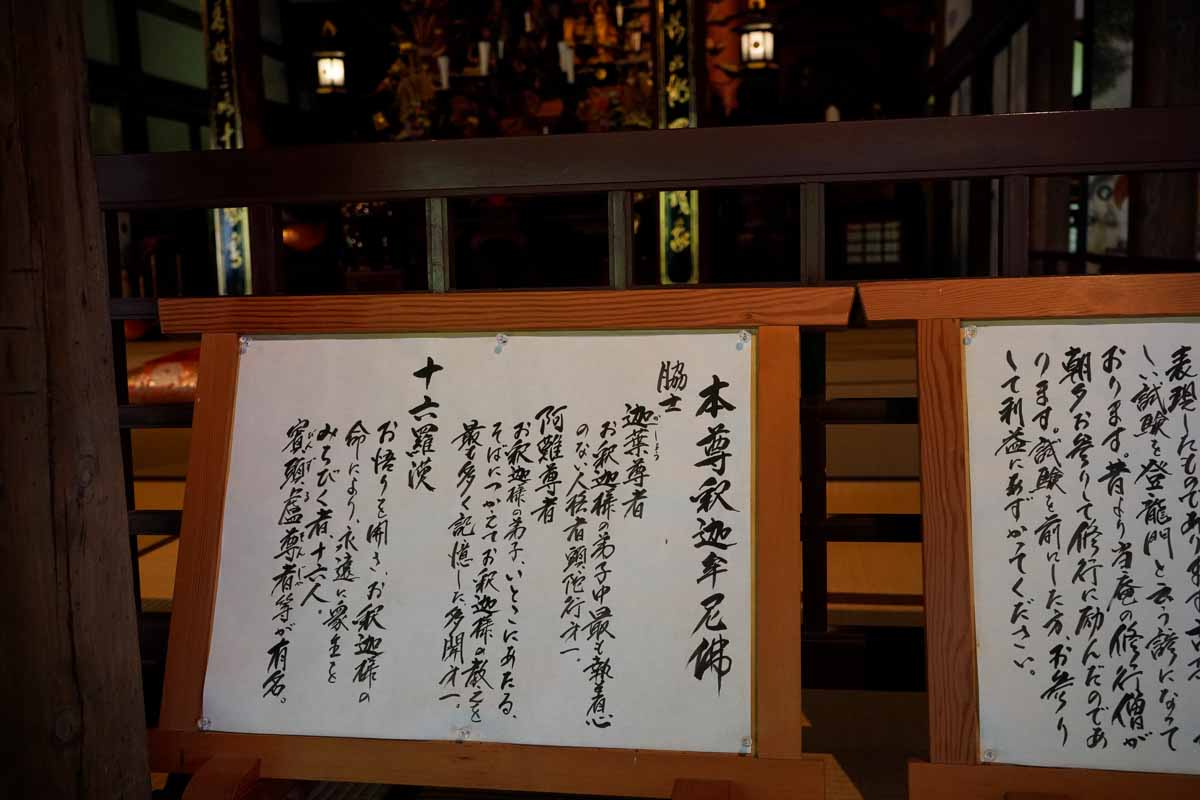 本尊釈迦牟尼佛
脇士
迦葉尊者
かしょう
お釈迦様の弟子中最も執着心
のない人格者頭陀行才一。
阿難尊者
お釈迦様の弟子、いとこにあたる、
そばにつかえてお釈迦様の教えを
最も多く記憶した多聞才一。
十六羅漢
お悟りを開き、お釈迦様の
命により、永遠に衆生を
みちびく者十六人。
賓頭盧尊者等が有名。
びんずるそんじゃ
表現したものであり
しい試験を登龍門と云う諺になって
おります。昔より当庵の修行僧が
朝夕お参りして修行に励んだのであ
ります。試験を前にした方、お参り
して利益にあずかってください。